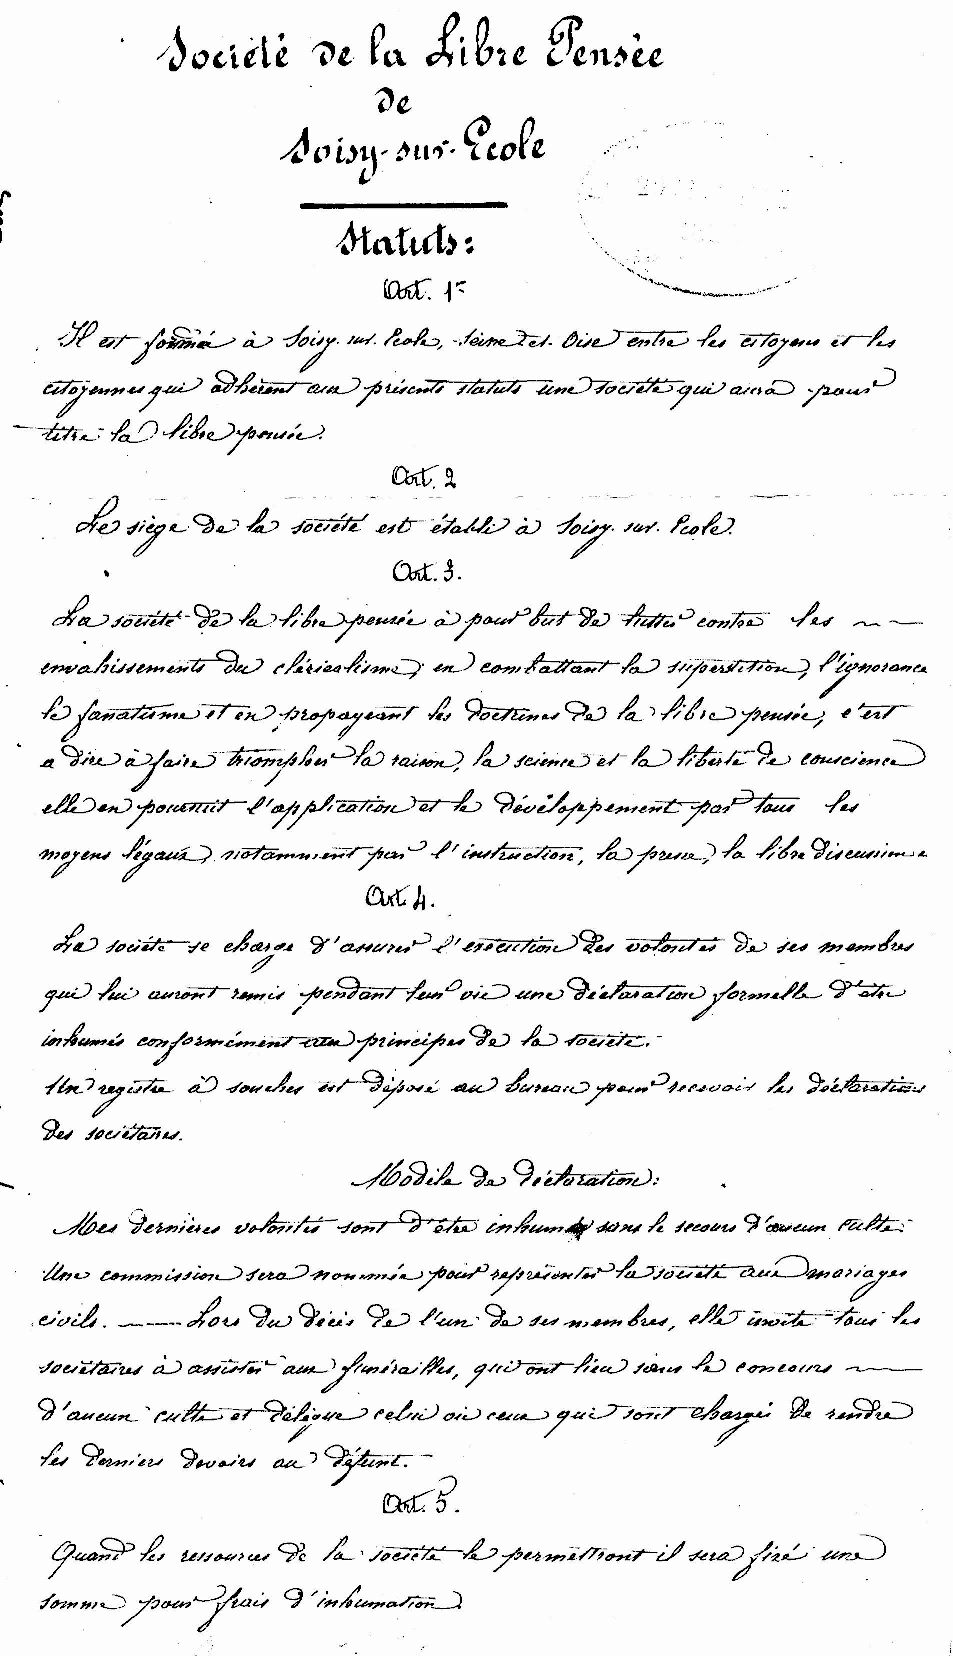 Société de la Libre Pensée
de
Soisy-sur-Ecole
Statuts:
Art. 1er
Il est formé à Soisy-sur-Ecole, Seine-et-Oise entre les citoyens et les
citoyennes qui adhèrent aux présents statuts une société qui aura pour
titre: la libre pensée.
Art. 2
Le siège de la société est établi à Soisy-sur-Ecole.
Art. 3.
La société de la libre pensée à pour but de lutter contre les
envahissements du cléricalisme, en combattant la superstition, l'ignorance
le fanatisme et en propageant les doctrines de la libre pensée, c'est
a dire à faire triompher la raison, la science et la liberté de conscience
elle en poursuit l'application et le développement par tous les
moyens légaux, notamment par l'instruction, la presse, la libre discussion
Art. 4.
La société se charge d'assurer l'exécution des volontés de ses membres
qui lui auront remis pendant leur vie une déclaration formelle d'être
inhumés conformément aux principes de la société.
Un registre à souches est déposé au bureau pour recevoir les déclarations
des sociétaires.
Modèle de déclaration:
Mes dernières volontés sont d'être inhumé sans le secours d'aucun culte.
Une commission sera nommée pour représenter la société aux mariages
civils. — Lors du décès de l'un de ses membres, elle invite tous les
sociétaires à assister aux funérailles, qui ont lieu sans le concours —
d'aucun culte et délègue celui ou ceux qui sont chargés de rendre
les derniers devoirs au défunt.
Art. 5.
Quand les ressources de la société le permettront il sera fixé une
somme pour frais d'inhumation.